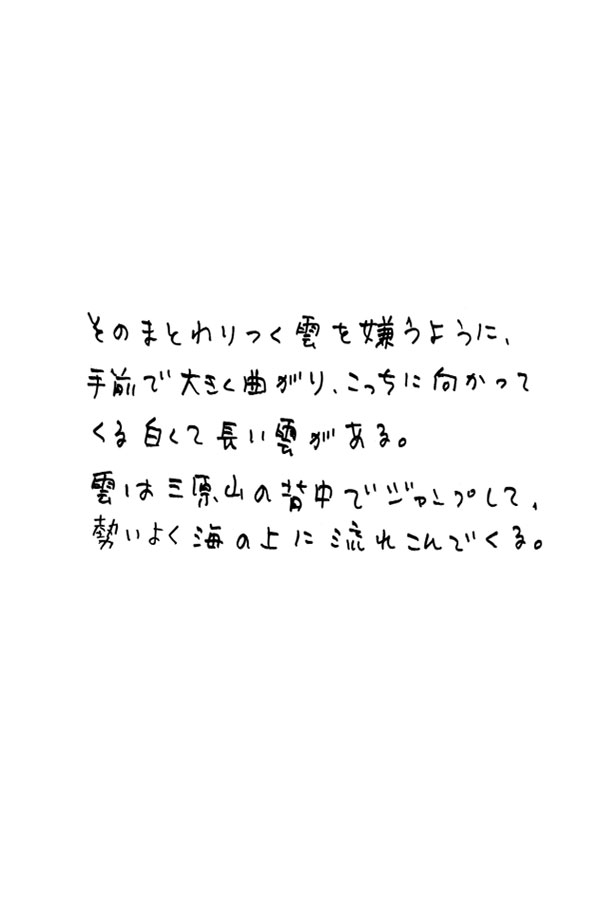 そのまとわりつく雲を嫌うように、
手前で大きく曲がり、こっちに向かって
くる白くて長い雲がある。
雲は三原山の背中でジャンプして、
勢いよく海の上に流れこんでくる。